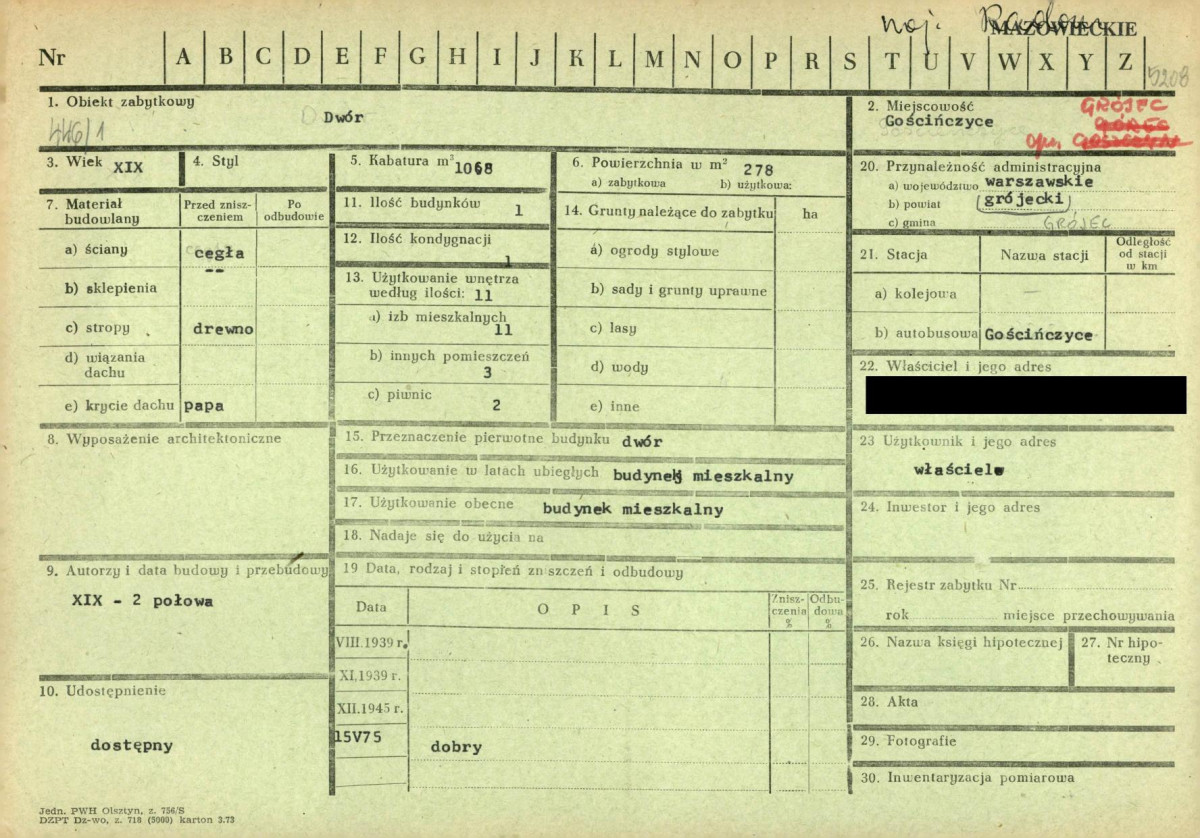 woj. Radom
MAZOWIECKIE
Nr A B C D E F G H I J K L M N O P R S T U V W X Y Z
5208
1. Obiekt zabytkowy
446/1
Dwór
2. Miejscowość
Gościńczyce
GRÓJEC
3. Wiek XIX
4. Styl
5. Kabatura m³ 1068
6. Powierzchnia w m² 278
a) zabytkowa b) użytkowa:
7. Materiał budowlany
Przed znisz-
czeniem
Po
odbudowie
a) ściany cegła
--
b) sklepienia
c) stropy drewno
d) wiązania
dachu
e) krycie dachu papa
11. Ilość budynków 1
12. Ilość kondygnacji
1
13. Użytkowanie wnętrza
według ilości: 11
a) izb mieszkalnych
11
b) innych pomieszczeń
3
c) piwnic
2
14. Grunty należące do zabytku ha
a) ogrody stylowe
b) sady i grunty uprawne
c) lasy
d) wody
e) inne
20. Przynależność administracyjna
a) województwo warszawskie
b) powiat grójecki
c) gmina GRÓJEC
21. Stacja
Nazwa stacji
Odległość
od stacji
w km
a) kolejowa
b) autobusowa Gościńczyce
22. Właściciel i jego adres
8. Wyposażenie architektoniczne
15. Przeznaczenie pierwotne budynku dwór
16. Użytkowanie w latach ubiegłych budynek mieszkalny
17. Użytkowanie obecne budynek mieszkalny
18. Nadaje się do użycia na
23 Użytkownik i jego adres
właściciel
24. Inwestor i jego adres
9. Autorzy i data budowy i przebudowy
XIX - 2 połowa
19 Data, rodzaj i stopień zniszczeń i odbudowy
Data
OPIS
Znisz-
czenia
%
Odbu-
dowa
%
VIII.1939 r.
XI.1939 r.
XII.1945 r.
15V75 dobry
25. Rejestr zabytku Nr
rok miejsce przechowywania
26. Nazwa księgi hipotecznej
27. Nr hipo-
teczny
28. Akta
29. Fotografie
30. Inwentaryzacja pomiarowa
10. Udostępnienie
dostępny
Jedn. PWH Olsztyn, z. 756/S
DZPT Dz-wo, z. 718 (5000) karton 3.73